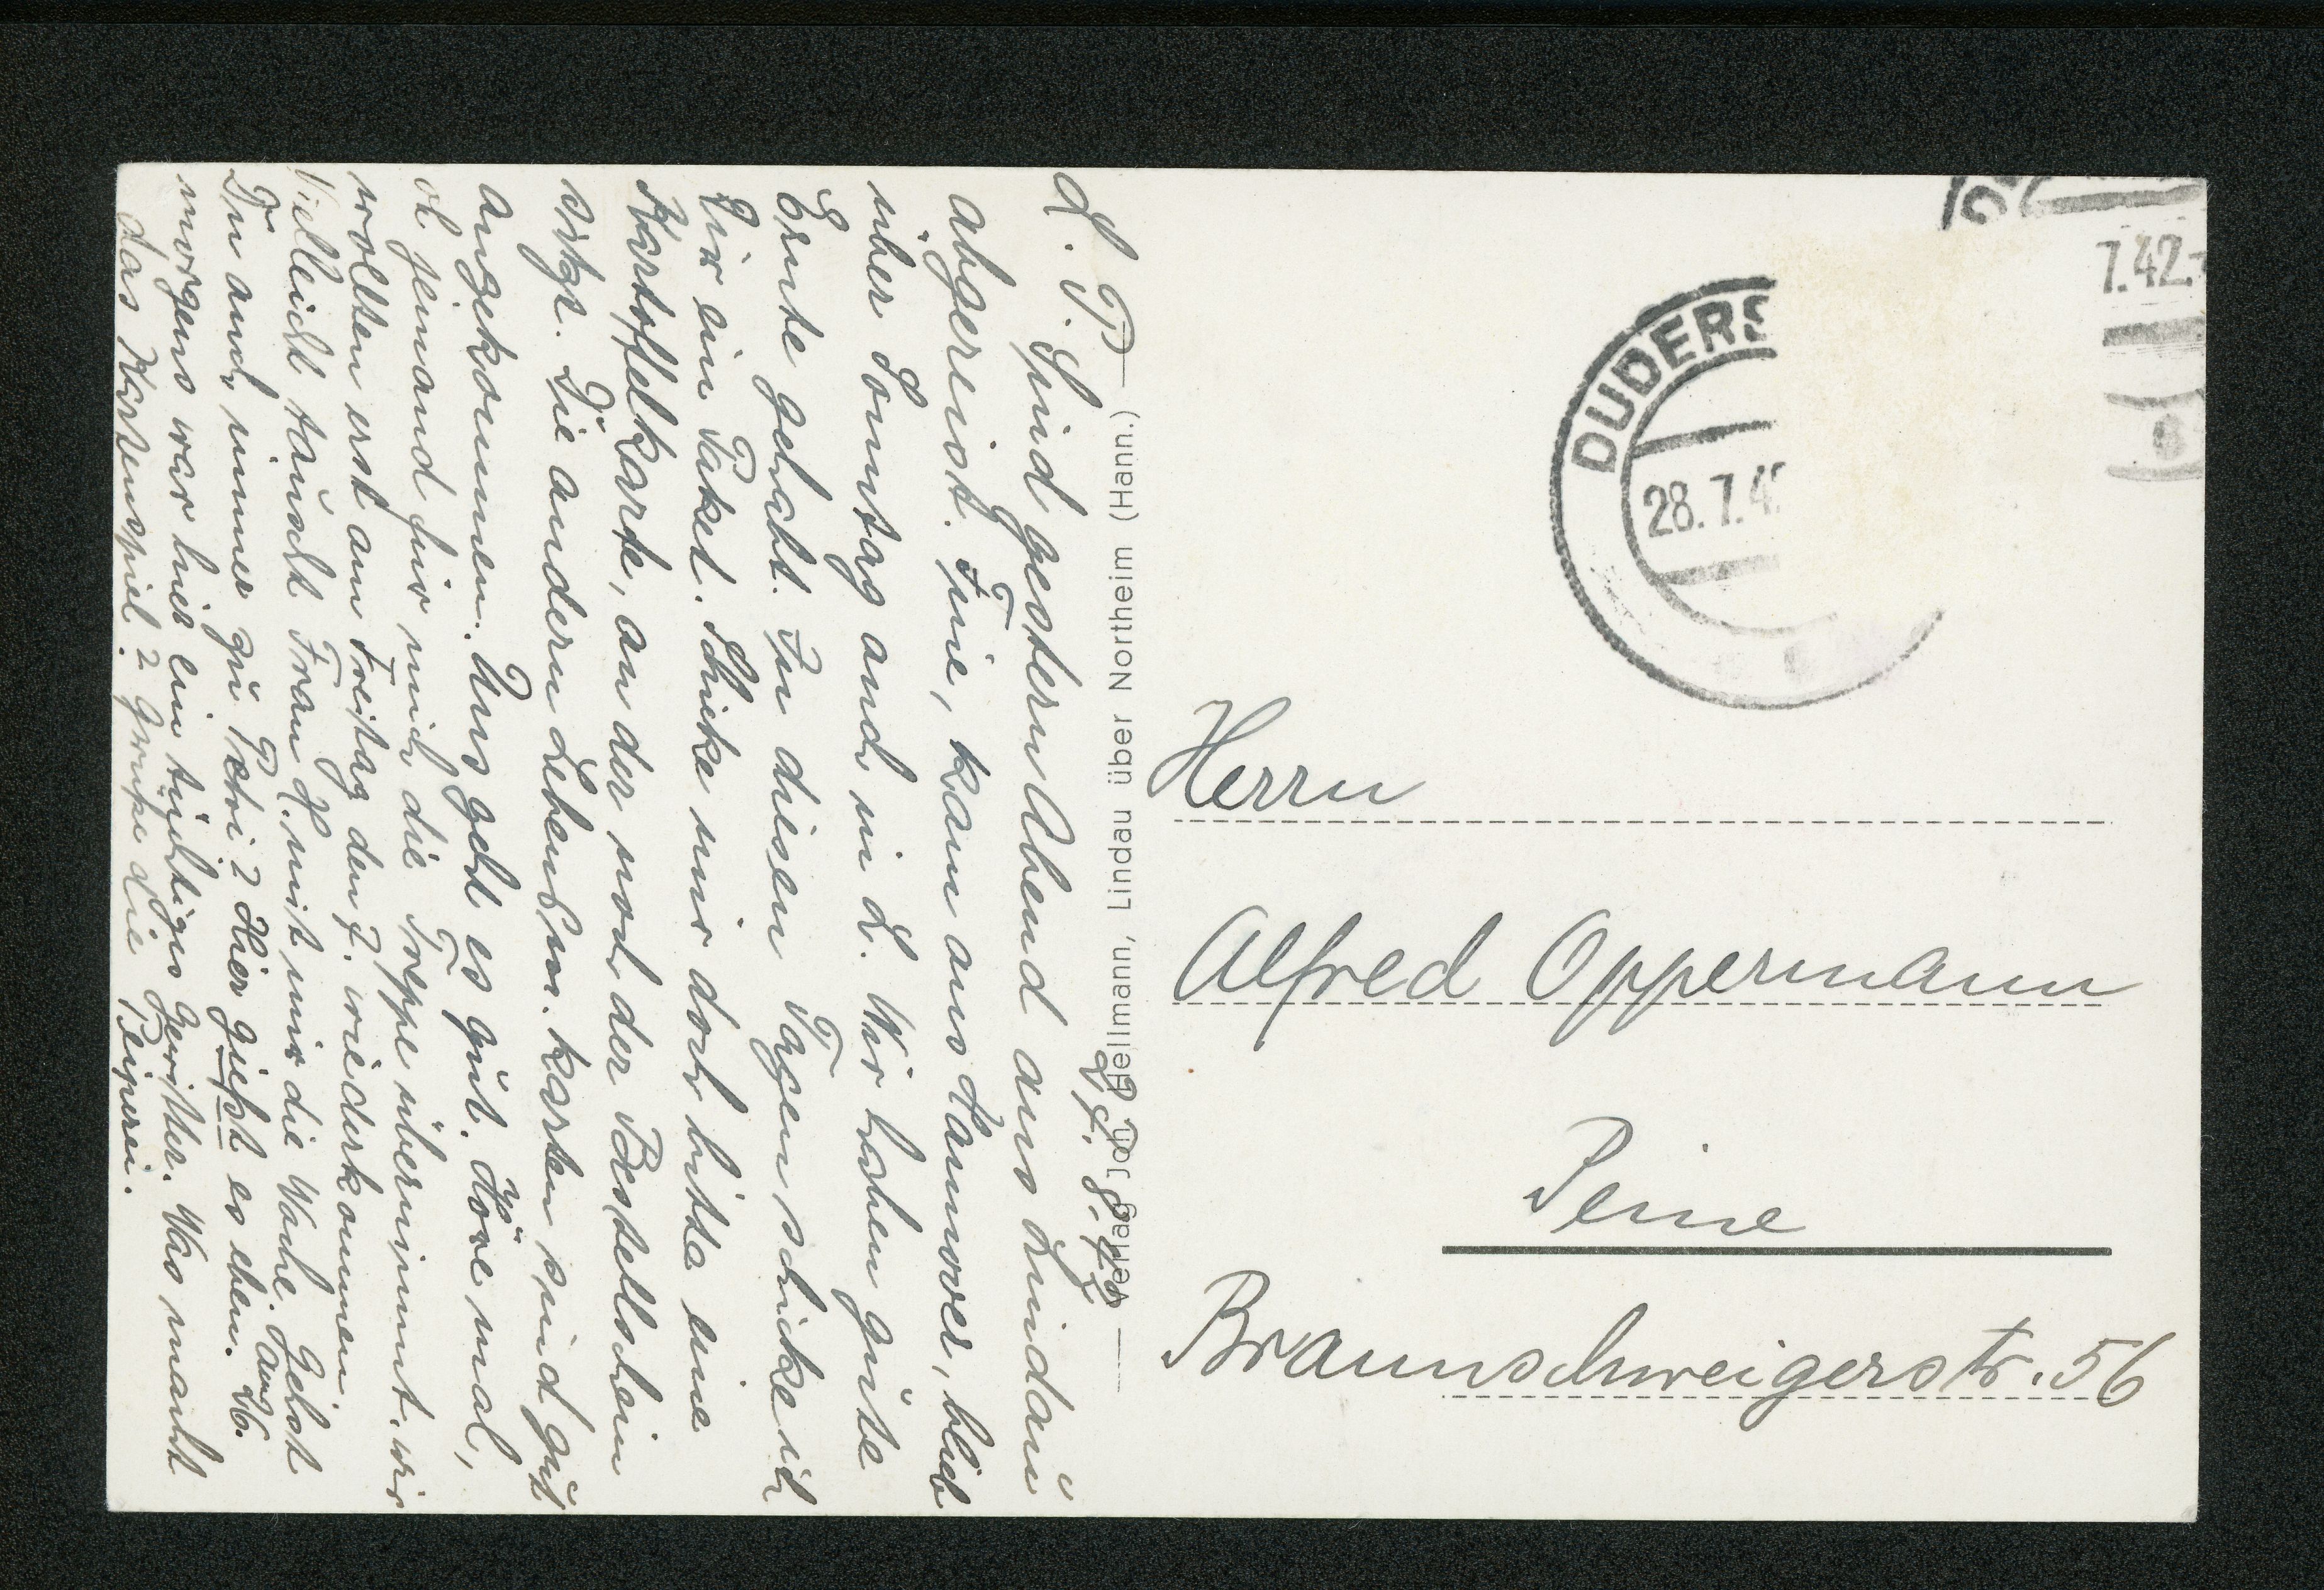 27. 8. 42
L. P.
Sind gestern Abend aus Lindau
abgereist. Fine, kam aus Hannover, blieb
über Sonntag auch in L. Wir haben gute
Ernte gehabt. In diesen Tagen schicke ich
Dir ein Paket. Schicke mir doch bitte eine
Kartoffelkarte, an der noch der Bestellschein
sitzt. Die andern Lebensm. karten sind gut
angekommen. Uns geht es gut. Höre mal,
ob jemand für mich die Treppe übernimmt. wir
wollten erst am Freitag dem 7. wiederkommen.
Vielleicht tauscht Frau H. mit mir die Woche. Gehst
Du auch immer zu Petri? Hier gießt es eben. Am 26.
morgens war hier ein tüchtiges Gewitter. Was macht
das Kirschenspiel? Grüße die
Verlag Joh. Hellmann, Lindau über Northeim (Hann.)
DUDERS
28.7.4
7.42.-
Herrn
Alfred Oppermann
Peine
Braunschweigerstr. 56